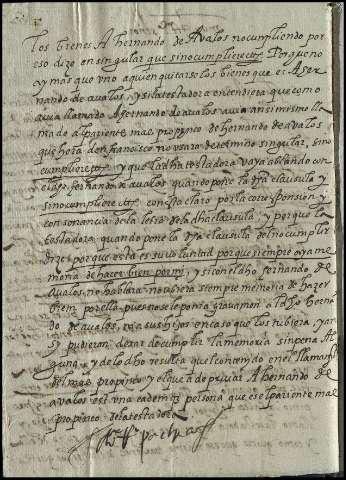 los bienes A hernando de Avalos no cumpliendo por
eso dize en singular que sino cumpliere etc. Porque no
ay mas que uno a quien quitarse los bienes que es A her
nando de avalos, y si la testadora entendiera que como
avia llamado A fernando de avalos avia ansi mismo lla
mado al pariente mas propinco de hernando de avalos
que hera don francisco no usara de termino singular, sino
cumpliere etc. y que la dha testadora vaya ablando con
el dho fernando de avalos quando pone la dha clausula y
sino cumpliere etc. consta claro por la correspension y
consonancia de la letra de la dha clausula, y porque la
testadora quando pone la dha clausula de no cumplir
dize porque esta es su voluntad porque siempre aya me
moria de hacer bien por mi, y si con el dho fernando de
Avalos no hablara no ubiera siempre memoria de hazer
bien por ella pues no se le ponia gravamen al dho herna
do de avalos, ni a sus hijos en caso que los tubiera, y an
si pudieran dexar de cumplir la memoria sin pena Al
guna, y de lo dho resulta que el contenido en el llamami
del mas propinco y el que a de privar A hernando de
avalos est una eademet persona que es el pariente mas
propinco de la testadora